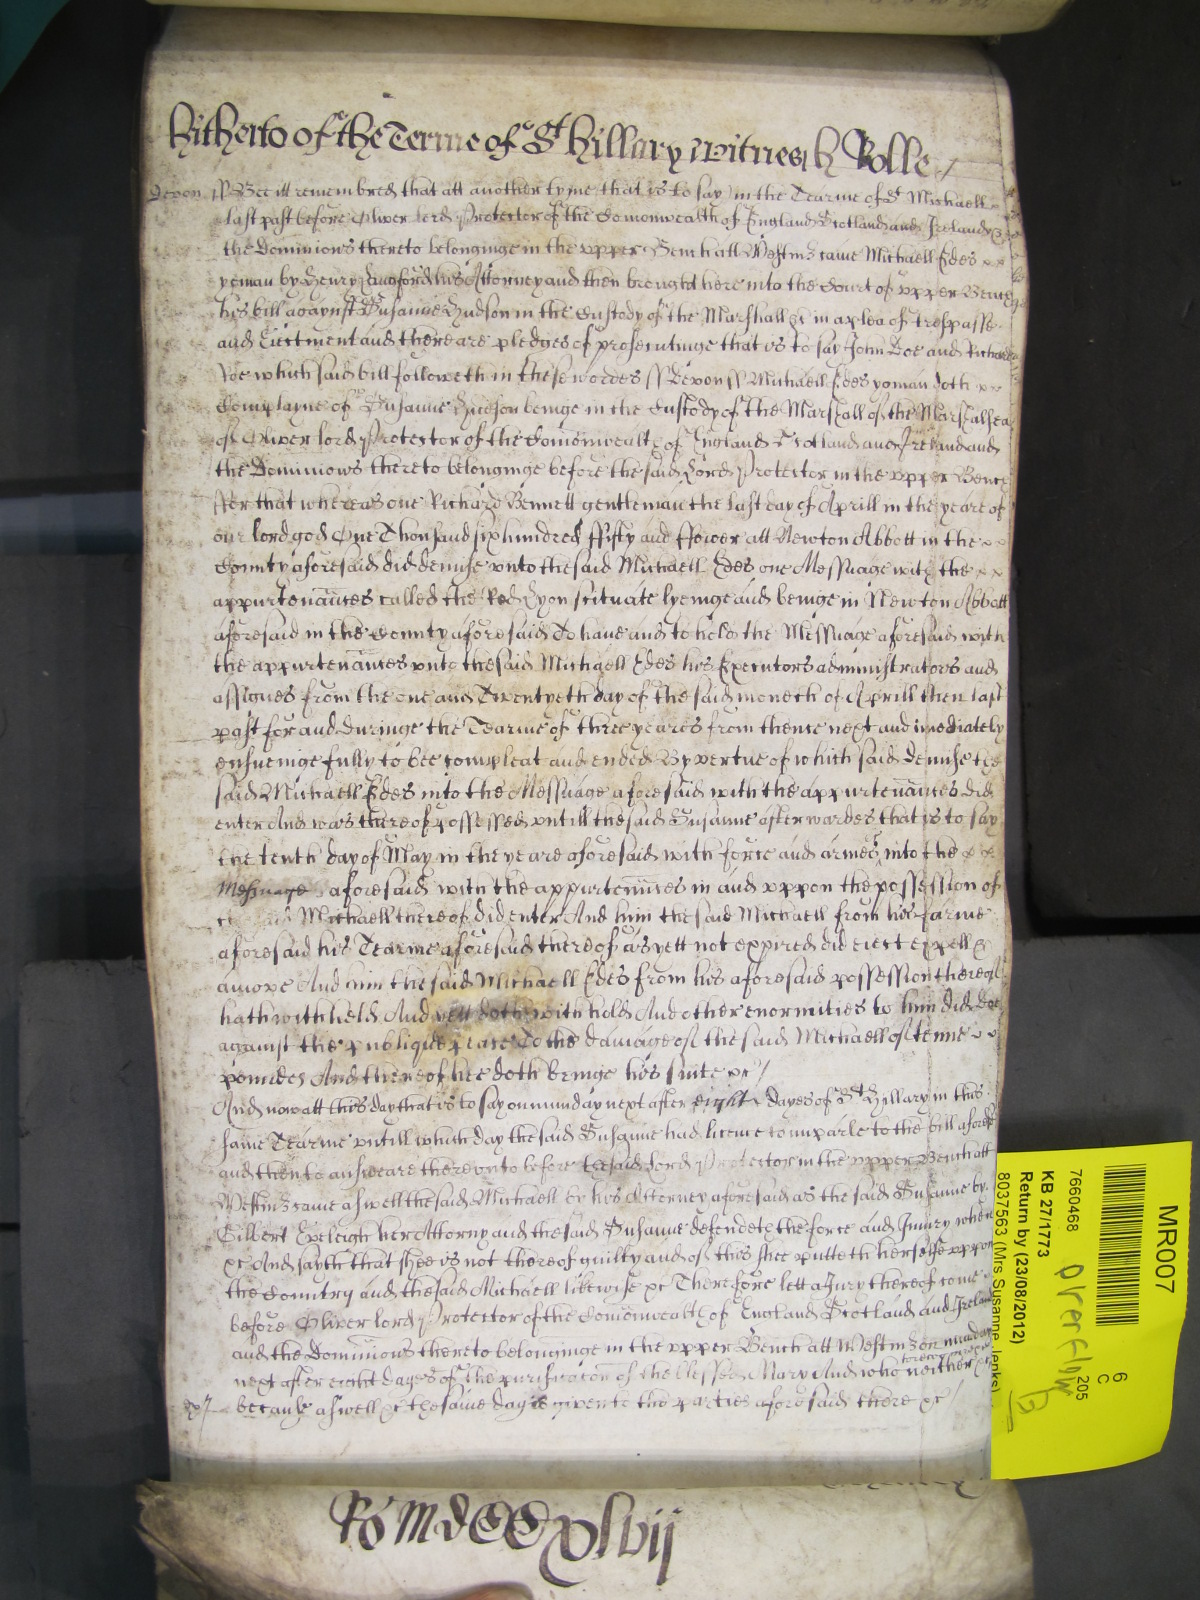 Hitherto of the Terme of St Hillary Witness H Rolle
Devon ss Bee itt remembred that att another tyme that is to say in the Tearme of St Michaell
last past before Oliver lord Protector of the Comonwealth of England Scotland and Ireland &
the Dominions thereto belonginge in the upper Bench att Westmr came Michaell Edes
yeman by Henry Langford his Attorney and then brought here into the Court of upper Bench
his bill against Susanne Hudson in the Custody of the Marshall &c in a plea of trespasse
and Eiectment and there are pledges of prosecutinge that is to say John Doe and Richard
Roe which said bill followeth in these wordes ss Devon ss Michaell Edes yoman doth
Complayne of Susanne Hudson beinge in the Custody of the Marshall of the Marshalsea
of Oliver lord Protector of the Comonwealth of England Scotland and Ireland and
the Dominions thereto belonginge before the said Lord Protector in the upper Bench
ffor that whereas one Richard Bennett gentleman the last day of Aprill in the yeare of
our lord god One Thousand six hundred ffifty and ffower att Newton Abbott in the
County aforesaid did demise unto the said Michaell Edes one Messuage with the
appurtenances called the Red Lyon scituate lyeinge and beinge in Newton Abbott
aforesaid in the County aforesaid To have and to hold the Messuage aforesaid with
the appurtenances unto the said Michaell Edes his Executors administrators and
assignes from the one and Twentyeth day of the said moneth of Aprill then last
past for and duringe the Tearme of three yeares from thence next and imediately
ensueinge fully to bee compleat and ended By vertue of which said demise the
said Michaell Edes into the Messuage aforesaid with the appurtenances did
enter And was thereof possessed untill the said Susanne afterwardes that is to say
the tenth day of May in the yeare aforesaid with force and armes into the
Messuage aforesaid with the appurtenances in and uppon the possession of
Michaell thereof did enter And him the said Michaell from his farme
aforesaid his Tearme aforesaid thereof as yett not expired did eiect expell &
amove And him the said Michaell Edes from his aforesaid possession thereof
hath withheld And yett doth withhold And other enormities to him did doe
against the publique peace To the damage of the said Michaell of tenne
poundes And thereof hee doth bringe his suite &c
And now att this day that is to say on munday next after eight dayes of St Hillary in this
same Tearme untill which day the said Susanne had licence to imparle to the bill aforesd
and then to answeare thereunto before the said Lord Protector in the upper Bench att
Westmr came aswell the said Michaell by his Attorney aforesaid as the said Susanne by
Gilbert Eveleigh her Attorny and the said Susanne defendeth the force and Iniury when
&c And sayth that shee is not thereof guilty and of this shee putteth herselfe uppon
the Country and the said Michaell likewise &c Therefore lett a Jury thereof come
before Oliver lord Protector of the Comonwealth of England Scotland and Ireland
and the Dominions thereto belonginge in the upper Bench att Westmr on munday
next after eight dayes of the purificacon of the blessed Mary And who neither &c
because aswell &c the same day is given to the parties aforesaid there &c
Ro MDCCxlvij
MR007
6
C
205
7660468
KB 27/1773
Return by (23/08/2012)
8037563 (Mrs Susanne Jenks)
Overflow